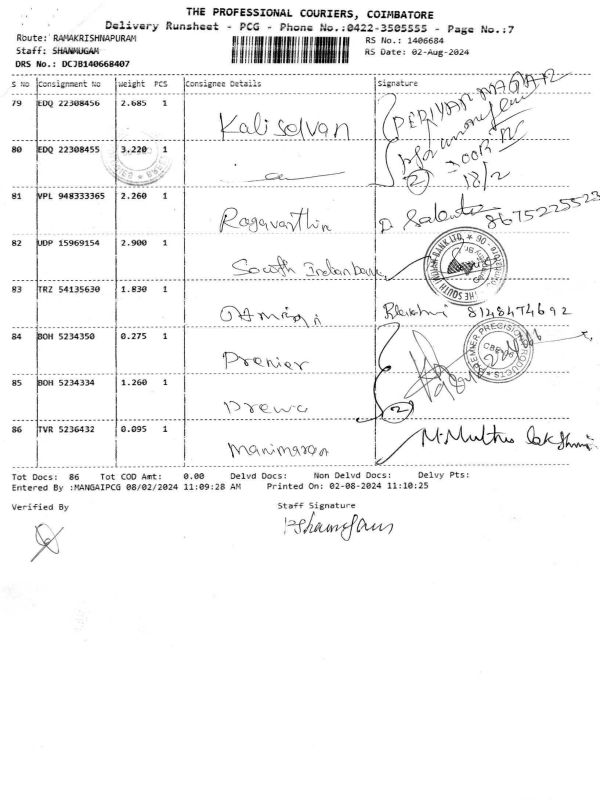 THE PROFESSIONAL COURIERS, COIMBATORE
Delivery Runsheet - PCG - Phone No.:0422-3505555 - Page No.:7
Route: RAMAKRISHNAPURAM RS No.: 1406684
Staff: SHANMUGAM RS Date: 02-Aug-2024
DRS No.: DCJB140668407
S No Consignment No Weight PCS Consignee Details Signature
79 EDQ 22308456 2.685 1 Kaliselvan PERIYAR NAGAR
80 EDQ 22308455 3.220 1 2 DOOR NO 18/2
81 VPL 948333365 2.260 1 Ragavarthin 8675225523
82 UDP 15969154 2.900 1 South Indian bank THE SOUTH INDIAN BANK LTD.
83 TRZ 54135630 1.830 1 8148474692
84 BOH 5234350 0.275 1 Premier PREMIER PRECISION PRODUCTS
85 BOH 5234334 1.260 1 2
86 TVR 5236432 0.095 1 Manimaran M. Muthu Lakshmi
Tot Docs: 86 Tot COD Amt: 0.00 Delvd Docs: Non Delvd Docs: Delvy Pts:
Entered By :MANGAIPCG 08/02/2024 11:09:28 AM Printed On: 02-08-2024 11:10:25
Verified By Staff Signature